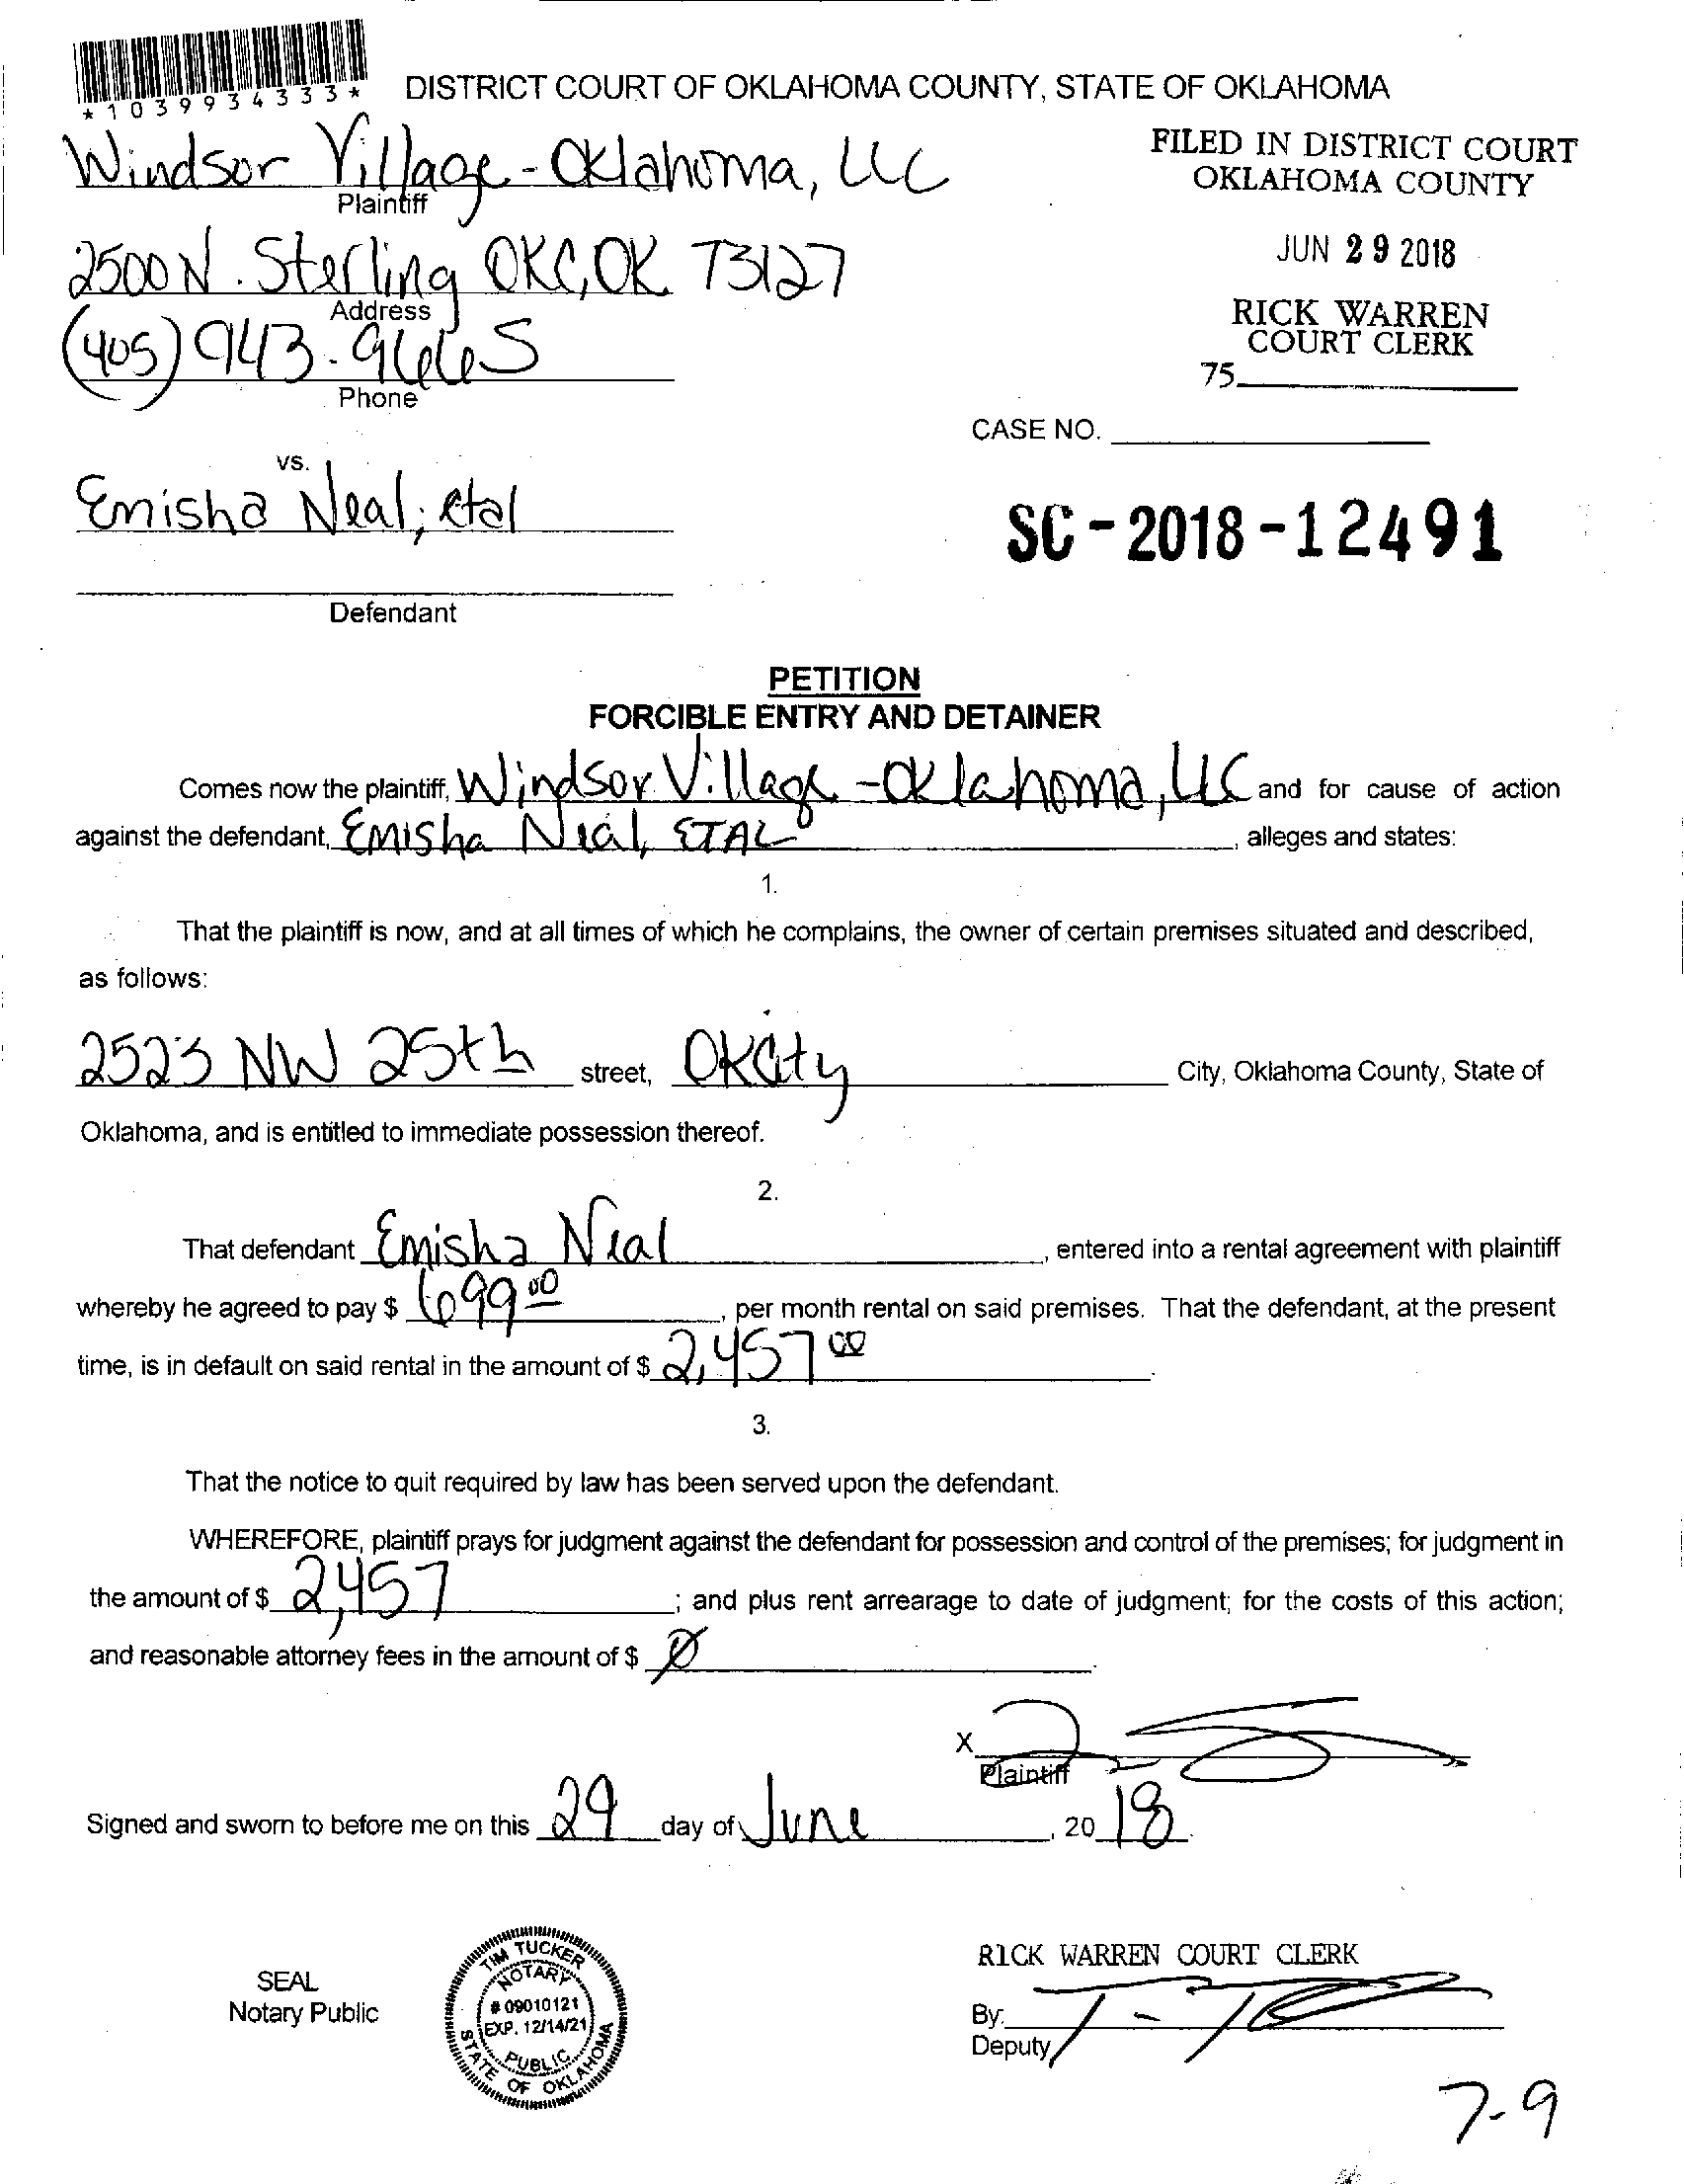 *1039934333*
DISTRICT COURT OF OKLAHOMA COUNTY, STATE OF OKLAHOMA
Windsor Village - Oklahoma, LLC
Plaintiff
FILED IN DISTRICT COURT
OKLAHOMA COUNTY
2500 N. Sterling OKC, OK 73127
Address
JUN 29 2018
(405) 943-9665
Phone
RICK WARREN
COURT CLERK
75
CASE NO.
vs.
Emisha Neal; etal
SC-2018-12491
Defendant
PETITION
FORCIBLE ENTRY AND DETAINER
Comes now the plaintiff, Windsor Village - Oklahoma, LLC and for cause of action
against the defendant, Emisha Neal, ETAL, alleges and states:
1.
That the plaintiff is now, and at all times of which he complains, the owner of certain premises situated and described,
as follows:
2523 NW 25th street, OKCity City, Oklahoma County, State of
Oklahoma, and is entitled to immediate possession thereof.
2.
That defendant Emisha Neal, entered into a rental agreement with plaintiff
whereby he agreed to pay $ 699 00, per month rental on said premises. That the defendant, at the present
time, is in default on said rental in the amount of $ 2,457 00.
3.
That the notice to quit required by law has been served upon the defendant.
WHEREFORE, plaintiff prays for judgment against the defendant for possession and control of the premises; for judgment in
the amount of $ 2,457; and plus rent arrearage to date of judgment; for the costs of this action;
and reasonable attorney fees in the amount of $ Ø.
X
Plaintiff
Signed and sworn to before me on this 29 day of June, 2018.
SEAL
Notary Public
TIM TUCKER
NOTARY
# 09010121
EXP. 12/14/21
PUBLIC
STATE OF OKLAHOMA
RICK WARREN COURT CLERK
By:
Deputy
7-9